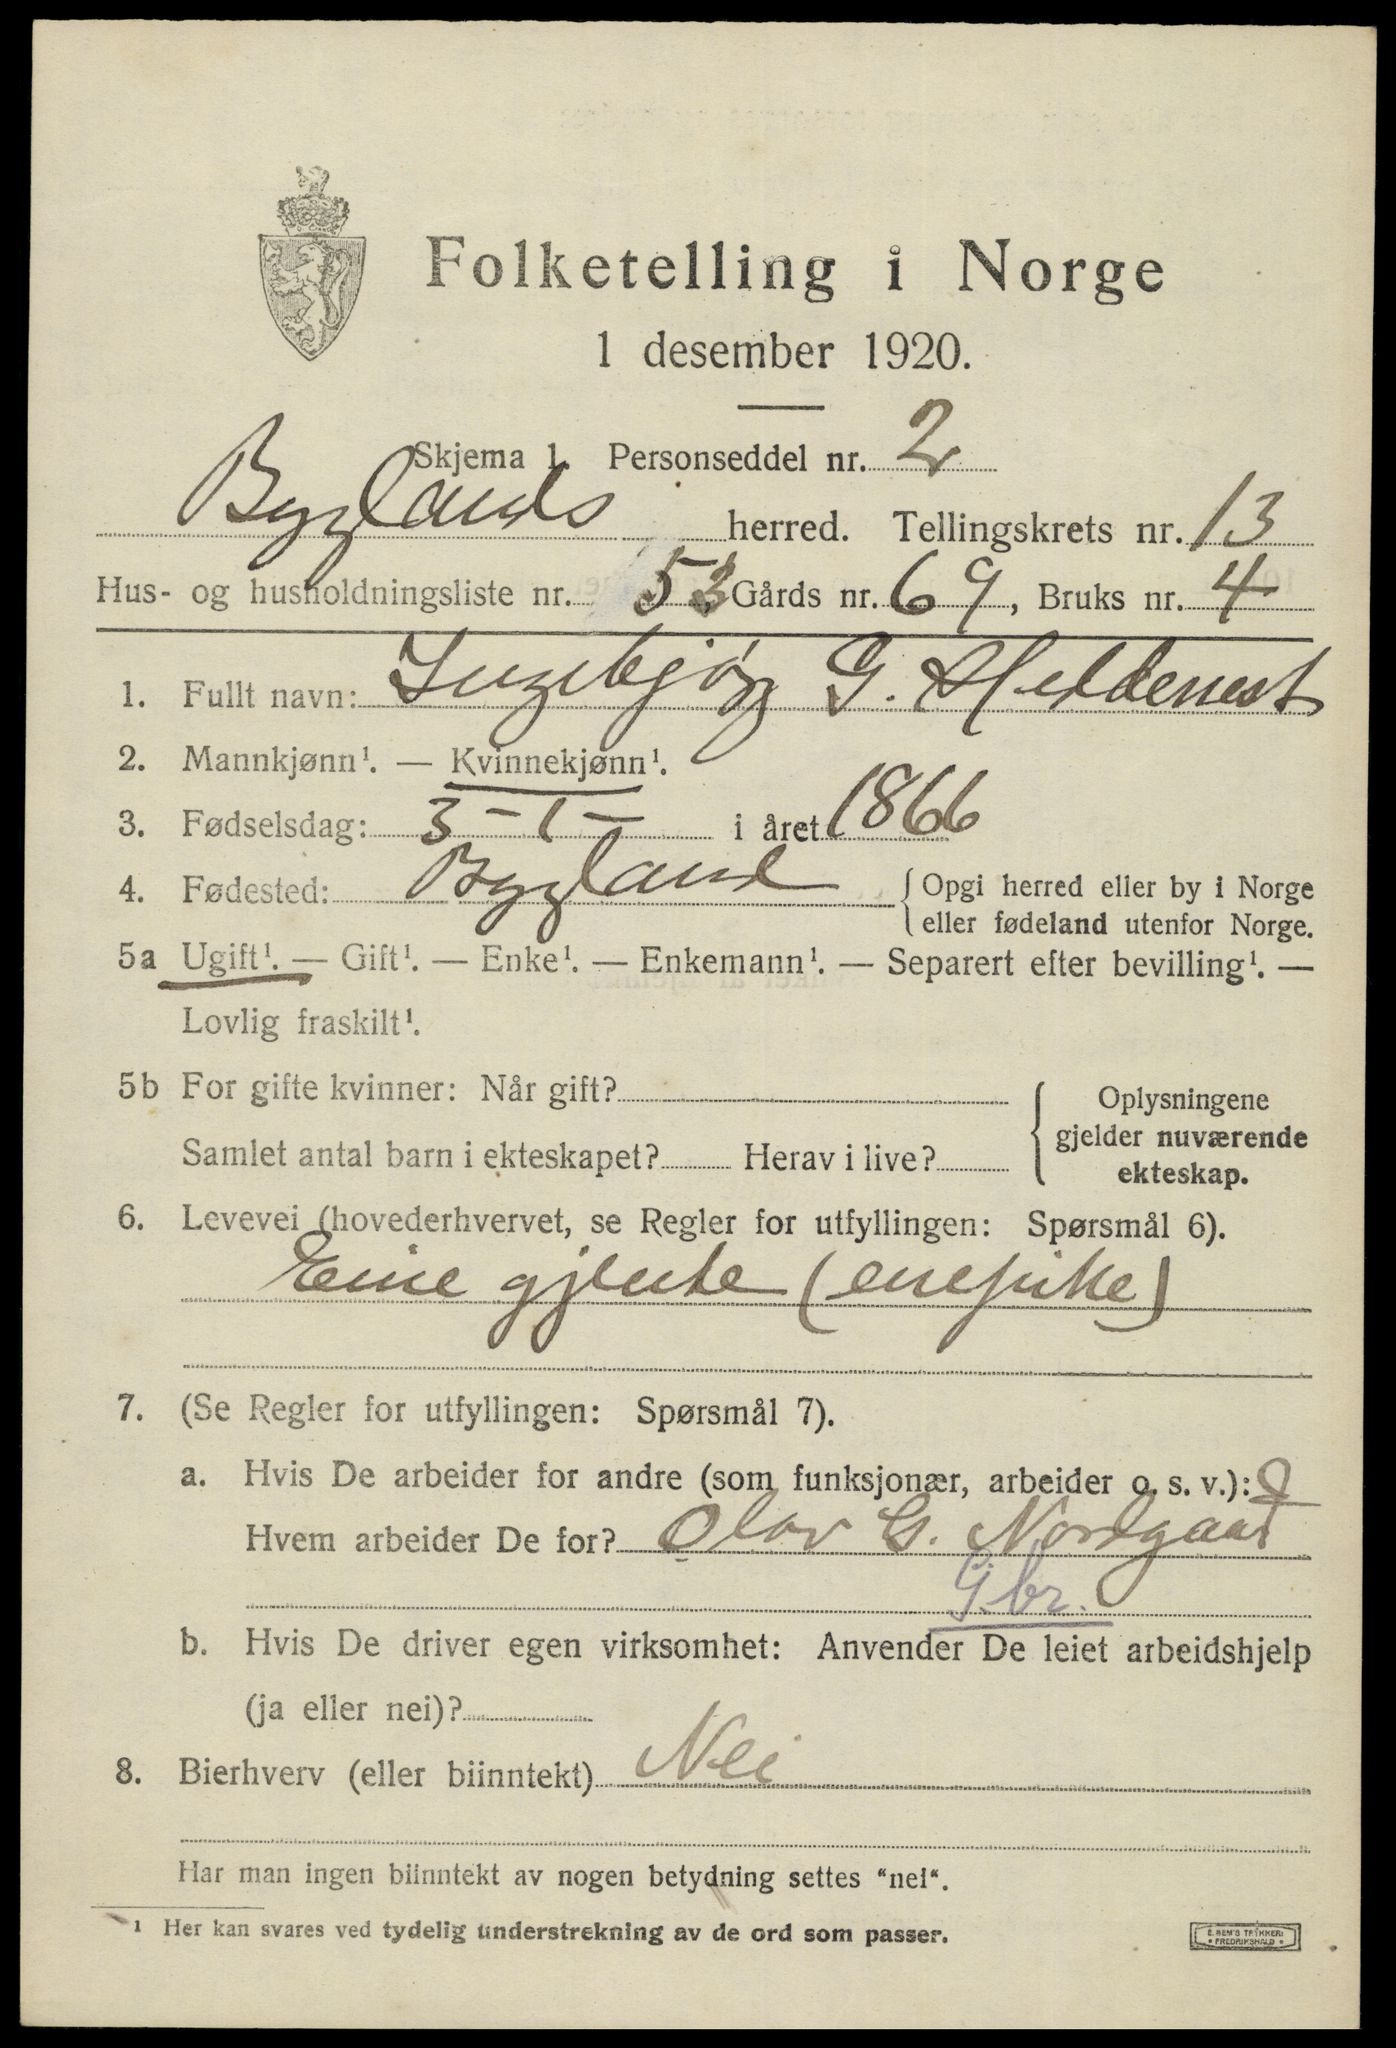 Folketelling i Norge
1 desember 1920.
Skjema 1. Personseddel nr. 2
Byglands herred. Tellingskrets nr. 13
Hus- og husholdningsliste nr. 53 Gårds nr. 69, Bruks nr. 4
1. Fullt navn: Ingebjørg G. Heddenest
2. Mannkjønn¹. — Kvinnekjønn¹.
3. Fødselsdag: 3 - 1 - i året 1866
4. Fødested: Bygland {Opgi herred eller by i Norge
eller fødeland utenfor Norge.
5a Ugift¹. — Gift¹. — Enke¹. — Enkemann¹. — Separert efter bevilling¹. —
Lovlig fraskilt¹.
5b For gifte kvinner: Når gift?
Samlet antal barn i ekteskapet? Herav i live?
{Oplysningene
gjelder nuværende
ekteskap.
6. Levevei (hovederhvervet, se Regler for utfyllingen: Spørsmål 6).
Eine gjente (enepike)
7. (Se Regler for utfyllingen: Spørsmål 7).
a. Hvis De arbeider for andre (som funksjonær, arbeider o. s. v.):
Hvem arbeider De for? Olav G. Nordgaard
G.br.
b. Hvis De driver egen virksomhet: Anvender De leiet arbeidshjelp
(ja eller nei)?
8. Bierhverv (eller biinntekt) Nei
Har man ingen biinntekt av nogen betydning settes "nei".
¹ Her kan svares ved tydelig understrekning av de ord som passer.
E. SEM'S TRYKKERI
FREDRIKSHALD